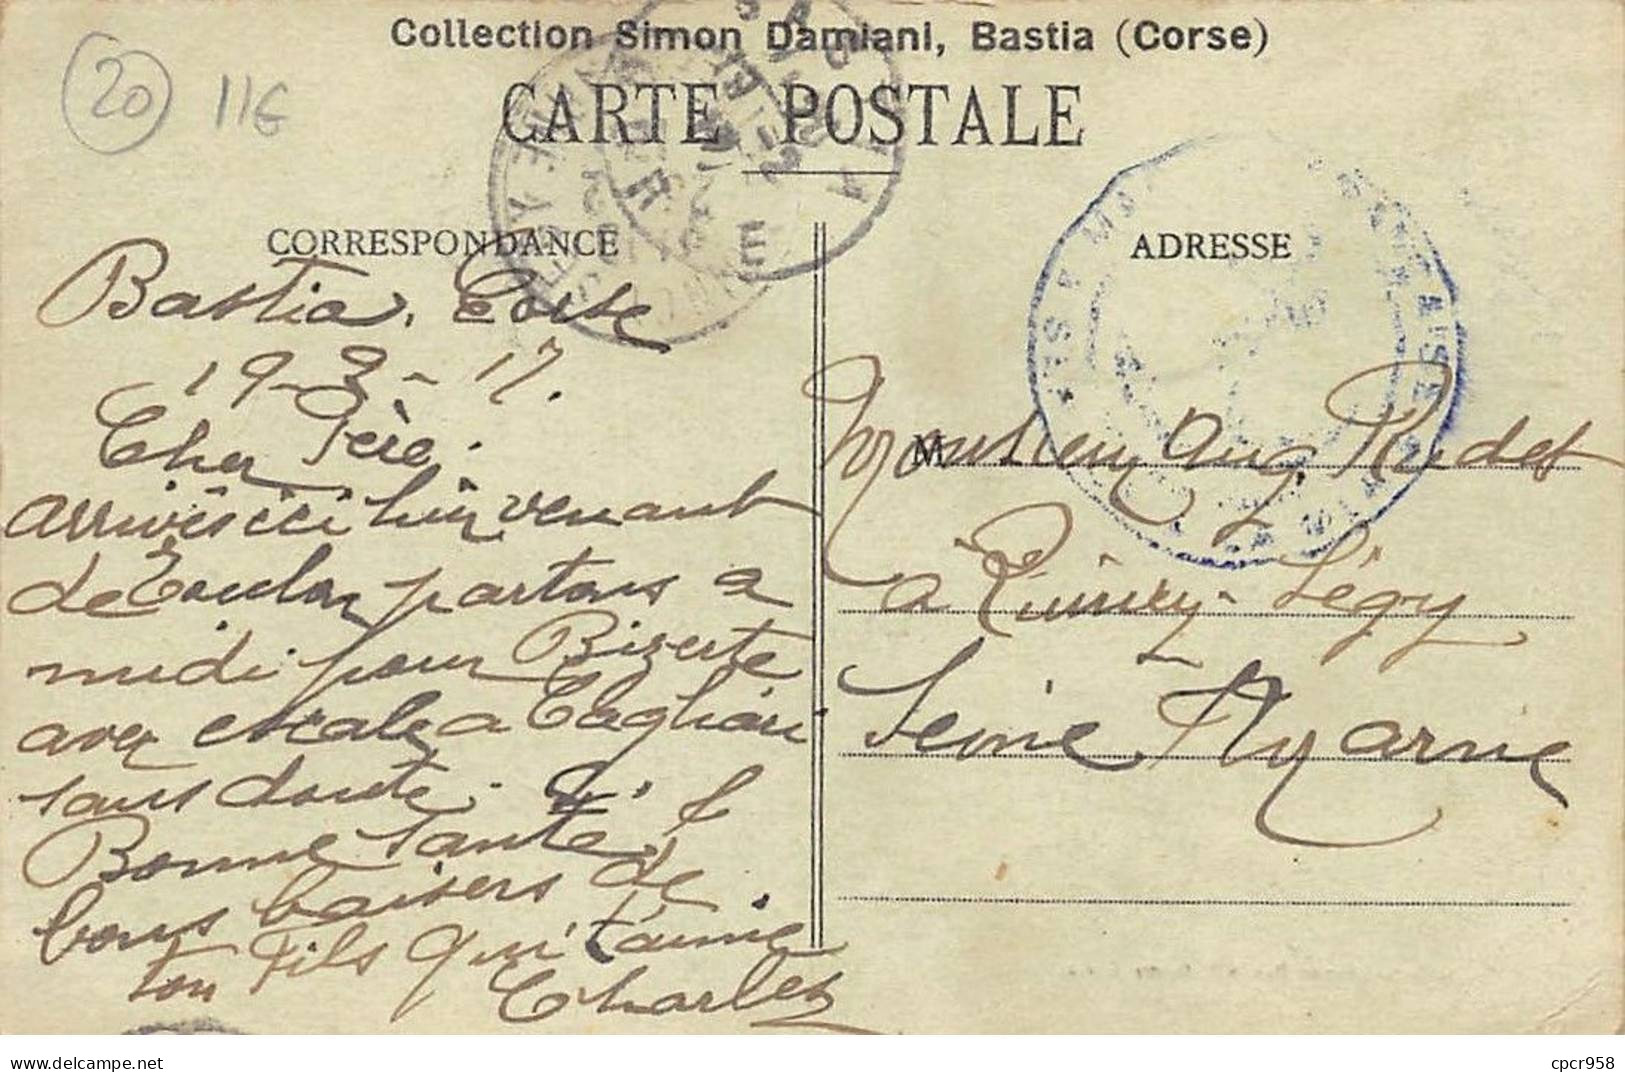 Collection Simon Damiani, Bastia (Corse)
CARTE POSTALE
20 11€
CORRESPONDANCE
ADRESSE
Bastia. Corse
19-3-17.
Cher Père.
arrivés ici hier venant
de Toulon partons a
midi pour Bizerte
avec escale a Cagliari
sans doute.
Bonne Santé. &
bons baisers de
ton Fils qui t'aime
Charles
M
Monsieur Aug. Rudet
a Quincy-Ségy
Seine & Marne
delcampe.net
cpcr958